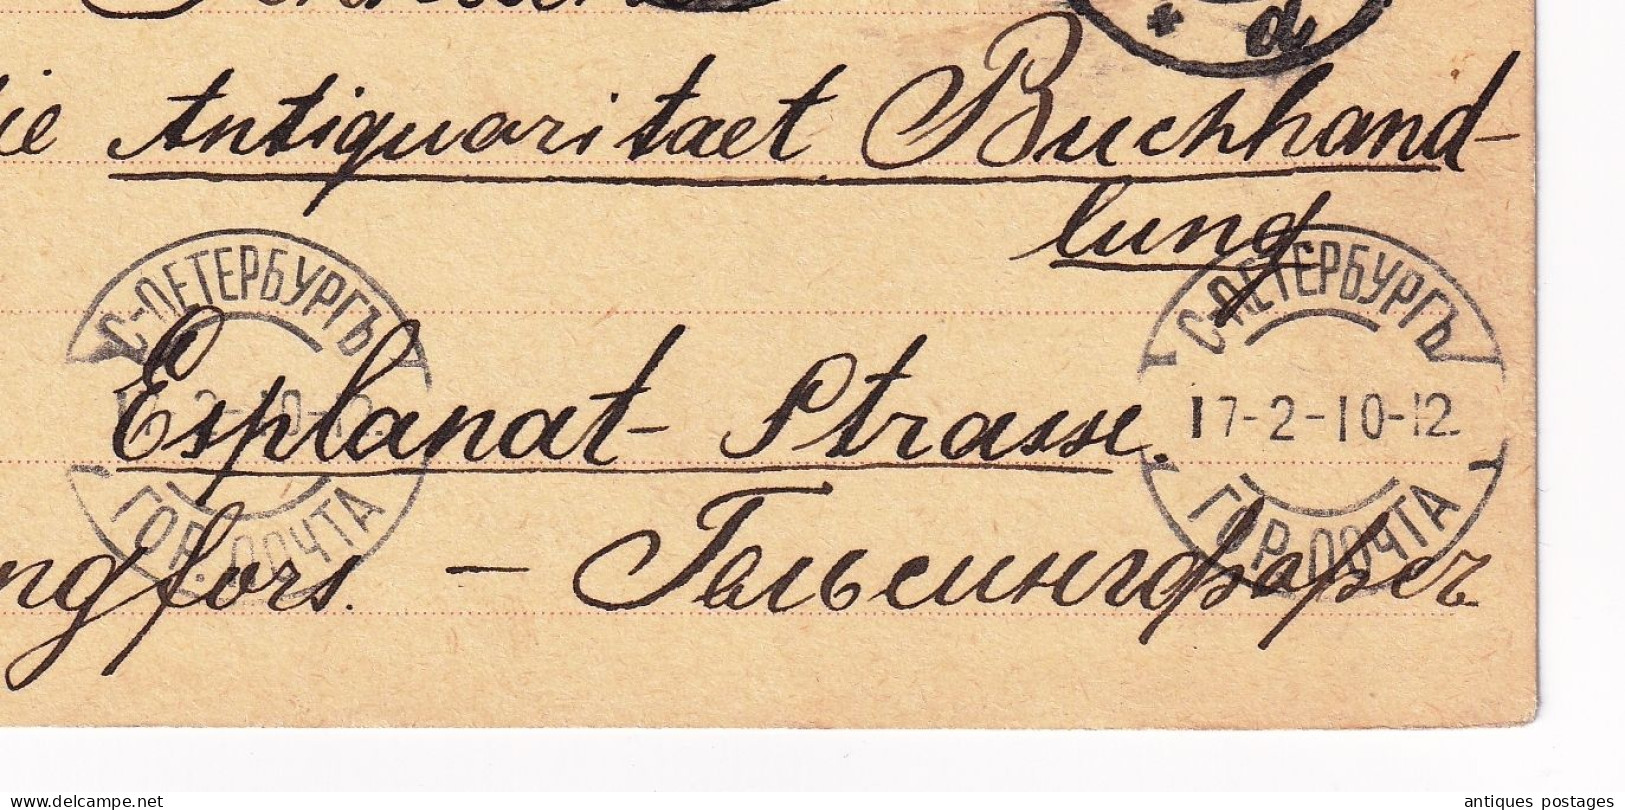 d
ie Antiquaritaet Buchhand-
lung
С-ПЕТЕРБУРГЪ
С-ПЕТЕРБУРГЪ
Esplanat- Strasse.
17-2-10-12
ГОР. ПОЧТА
ГОР. ПОЧТА
ngfors. — Гельсингфорсъ
www.delcampe.net
antiques postages